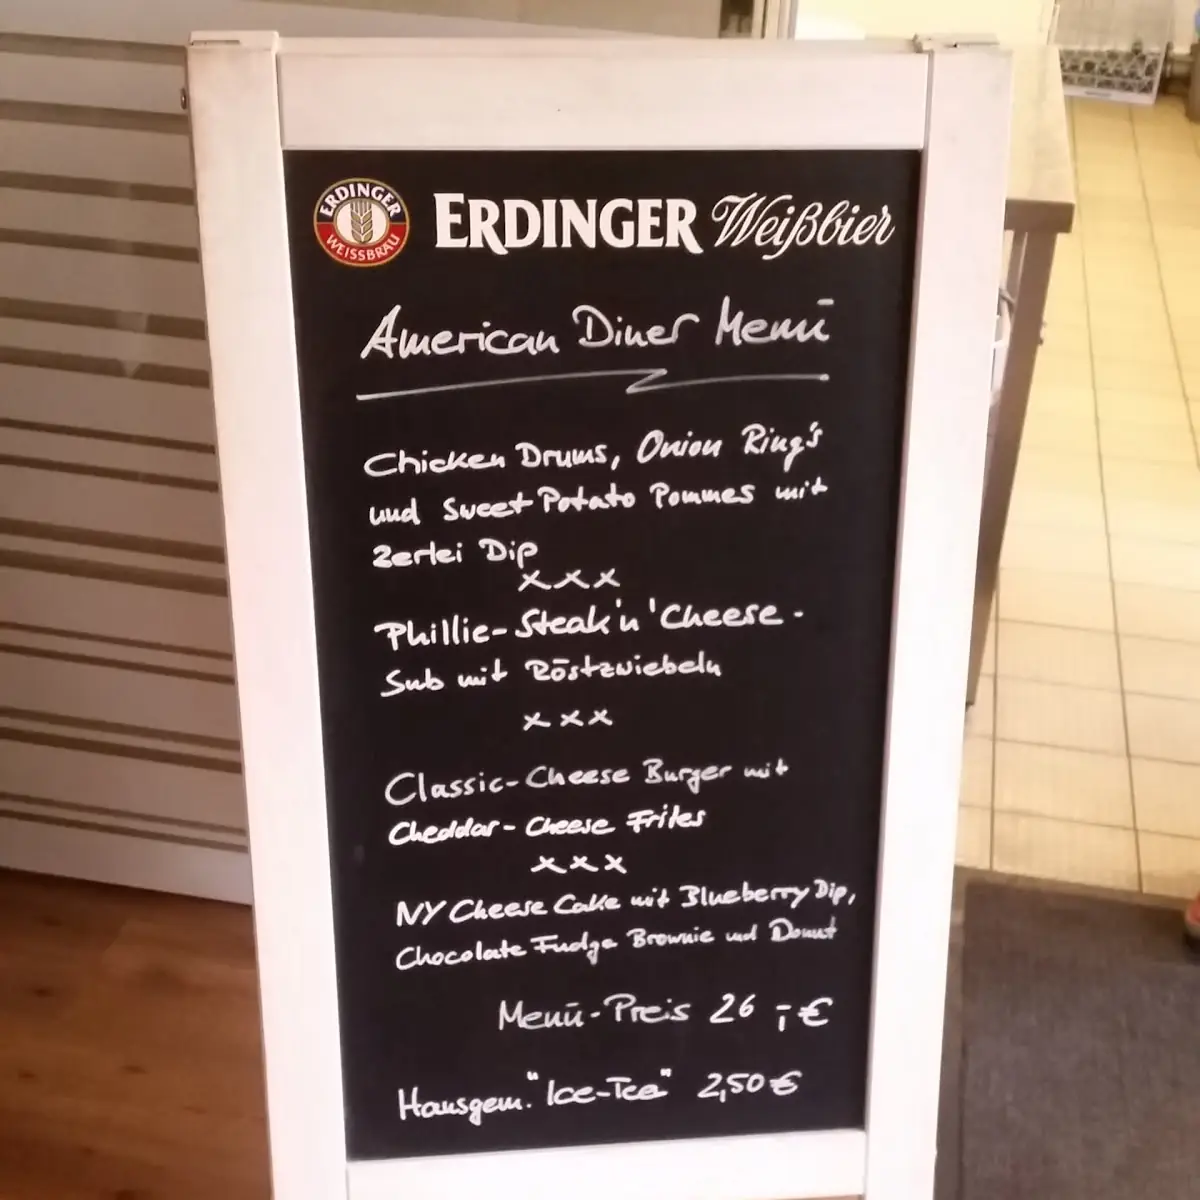 ERDINGER
WEISSBRÄU
ERDINGER Weißbier
American Diner Menü
Chicken Drums, Onion Ring's
und Sweet Potato Pommes mit
2erlei Dip
xxx
Phillie-Steak'n'Cheese-
Sub mit Röstzwiebeln
xxx
Classic-Cheese Burger mit
Cheddar-Cheese Frites
xxx
NY Cheese Cake mit Blueberry Dip,
Chocolate Fudge Brownie und Donut
Menü-Preis 26,-€
Hausgem. "Ice-Tea" 2,50€